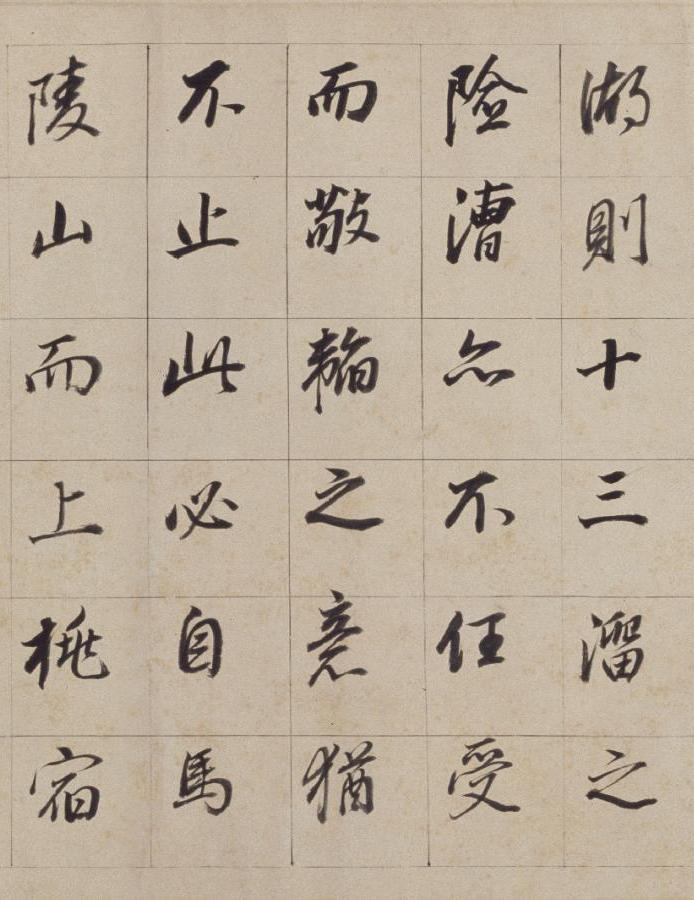 湖則十三溜之
險漕亦不任受
而敬韜之意猶
不止此必自馬
陵山而上桃宿